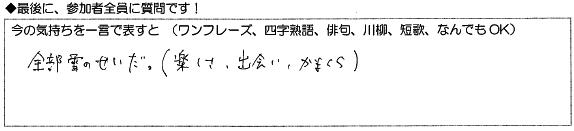 ◆最後に、参加者全員に質問です!
今の気持ちを一言で表すと (ワンフレーズ、四字熟語、俳句、川柳、短歌、なんでもOK)
全部雪のせいだ。(楽しさ、出会い、かまくら)